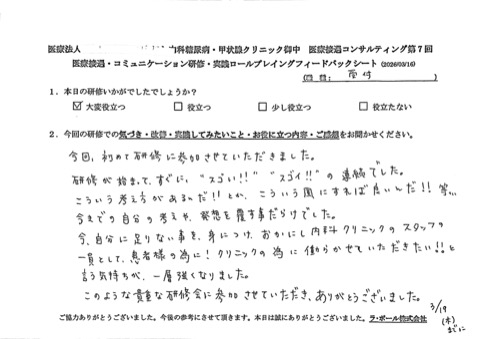 医療法人 内科糖尿病・甲状腺クリニック御中 医療接遇コンサルティング第7回
医療接遇・コミュニケーション研修・実践ロールプレイングフィードバックシート (2026/03/16)
受付
1. 本日の研修いかがでしたでしょうか?
☑ 大変役立つ □ 役立つ □ 少し役立つ □ 役立たない
2. 今回の研修での気づき・改善・実践してみたいこと・お役に立つ内容・ご感想をお聞かせください。
今回、初めて研修に参加させていただきました。
研修が始まって、すぐに、"スゴい!!" "スゴイ!!" の連続でした。
こういう考え方があるのだ!! とか、こういう風にすれば良いんだ!! 等、
今までの自分の考えや、発想を覆す事だらけでした。
今、自分に足りない事を、身につけ、おかにし内科クリニックのスタッフの
一員として、患者様の為に! クリニックの為に働らかせていただきたい!! と
言う気持ちが、一層強くなりました。
このような貴重な研修会に参加させていただき、ありがとうございました。
3/19
(木)
までに
ご協力ありがとうございました。今後の参考にさせて頂きます。本日は誠にありがとうございました。ラ・ポール株式会社